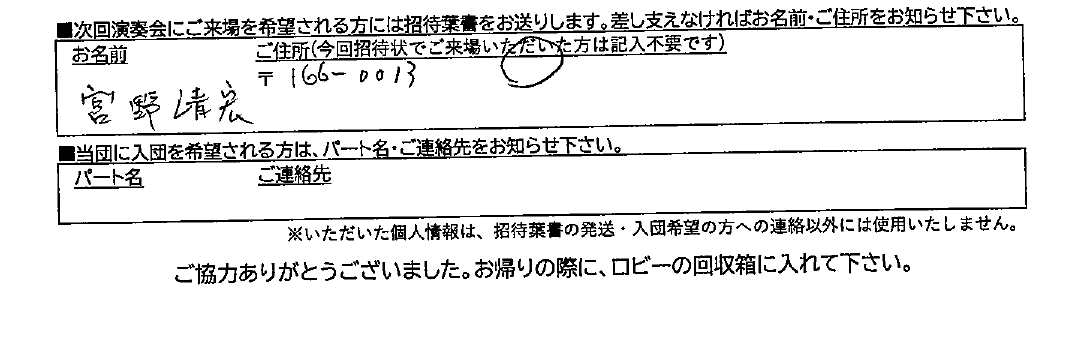 ■次回演奏会にご来場を希望される方には招待葉書をお送りします。差し支えなければお名前・ご住所をお知らせ下さい。
お名前 ご住所(今回招待状でご来場いただいた方は記入不要です)
〒166-0013
宮野清宏
■当団に入団を希望される方は、パート名・ご連絡先をお知らせ下さい。
パート名 ご連絡先
※いただいた個人情報は、招待葉書の発送・入団希望の方への連絡以外には使用いたしません。
ご協力ありがとうございました。お帰りの際に、ロビーの回収箱に入れて下さい。